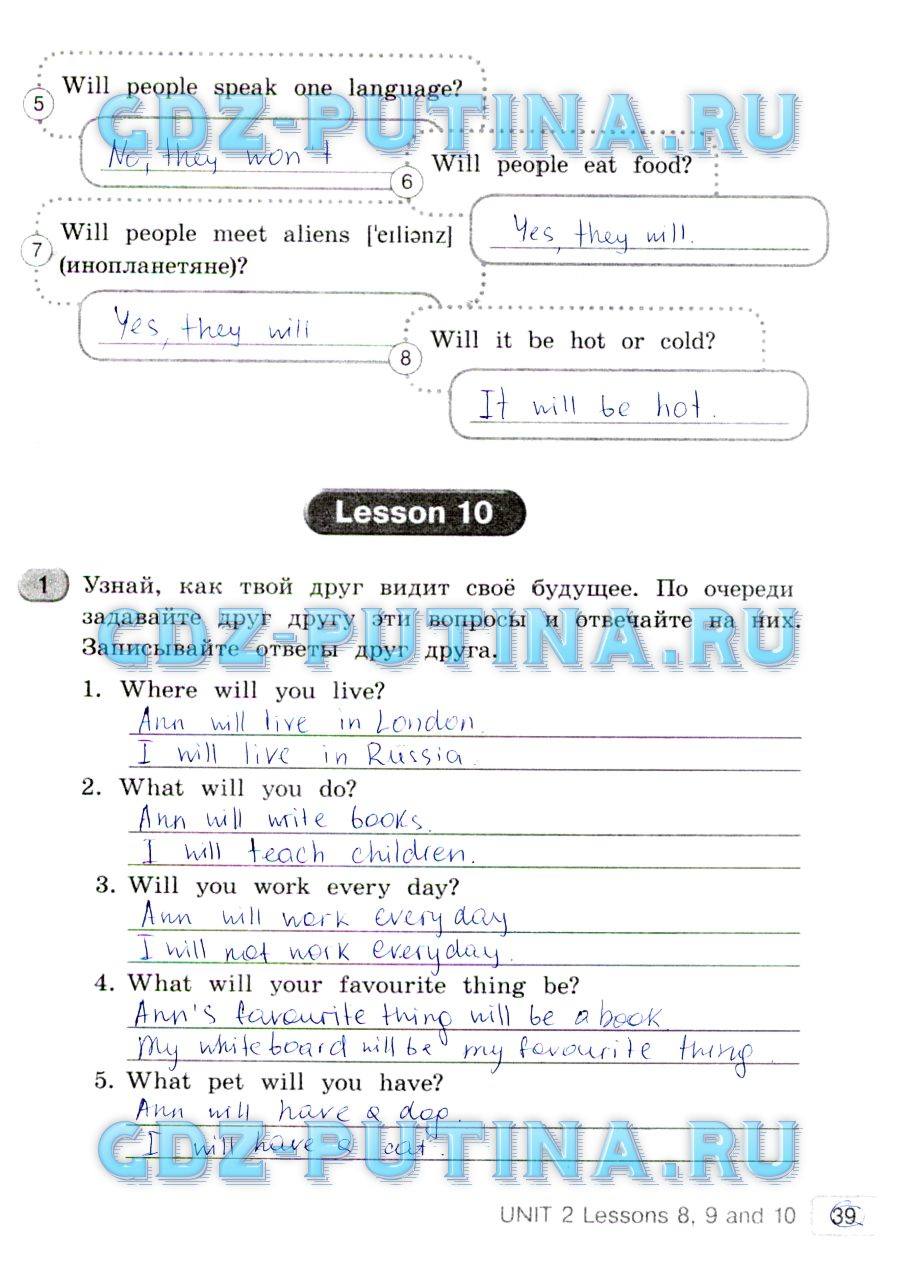 5 Will people speak one language?
No, they won't
6 Will people eat food?
Yes, they will.
7 Will people meet aliens ['eɪliənz]
(инопланетяне)?
Yes, they will
8 Will it be hot or cold?
It will be hot.
Lesson 10
1 Узнай, как твой друг видит своё будущее. По очереди
задавайте друг другу эти вопросы и отвечайте на них.
Записывайте ответы друг друга.
1. Where will you live?
Ann will live in London.
I will live in Russia.
2. What will you do?
Ann will write books.
I will teach children.
3. Will you work every day?
Ann will work everyday
I will not work everyday.
4. What will your favourite thing be?
Ann's favourite thing will be a book.
My whiteboard will be my favourite thing.
5. What pet will you have?
Ann will have a dog.
I will have a cat.
UNIT 2 Lessons 8, 9 and 10 39
GDZ-PUTINA.RU
GDZ-PUTINA.RU
GDZ-PUTINA.RU